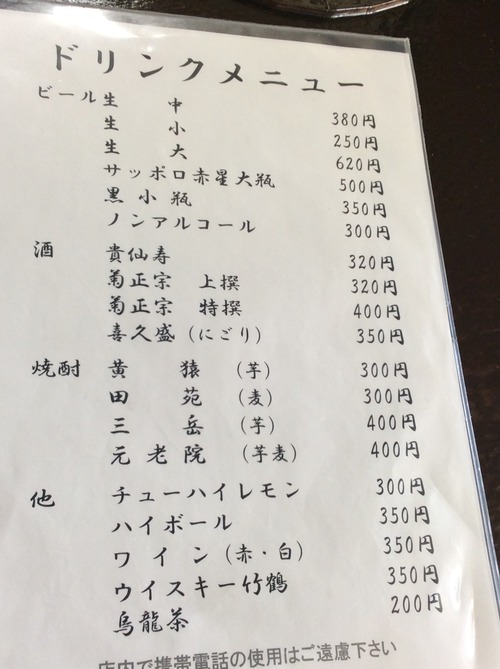 ドリンクメニュー
ビール 生 中 380円
生 小 250円
生 大 620円
サッポロ赤星大瓶 500円
黒小瓶 350円
ノンアルコール 300円
酒 貴仙寿 320円
菊正宗 上撰 320円
菊正宗 特撰 400円
喜久盛(にごり) 350円
焼酎 黄 猿 (芋) 300円
田 苑 (麦) 300円
三 岳 (芋) 400円
元老院 (芋麦) 400円
他 チューハイレモン 300円
ハイボール 350円
ワイン(赤・白) 350円
ウイスキー竹鶴 350円
烏龍茶 200円
店内で携帯電話の使用はご遠慮下さい